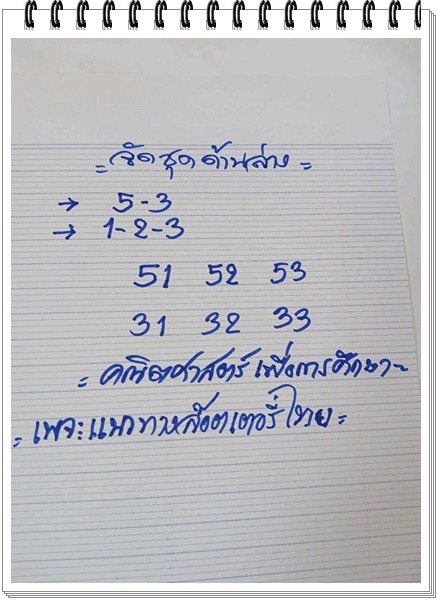 = จัดชุดด้านล่าง =
→ 5-3
→ 1-2-3
51 52 53
31 32 33
= คณิตศาสตร์เพื่อการศึกษา ~
= เพจ:แนวทางล็อตเตอรี่ไทย =